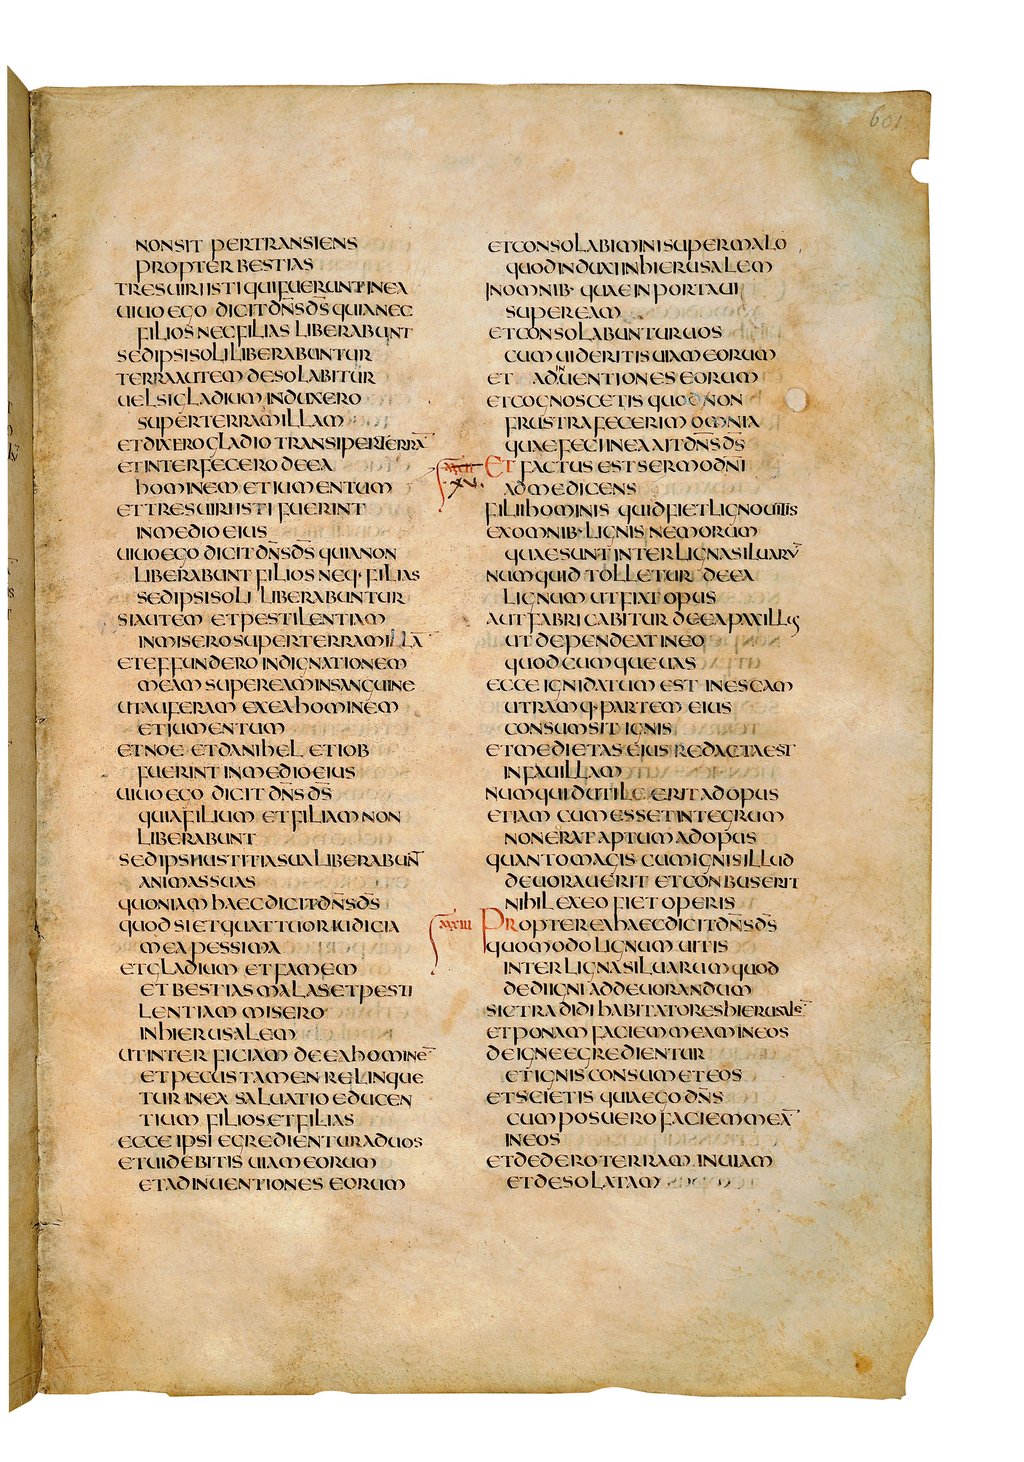 601
NONSIT PERTRANSIENS
PROPTER BESTIAS
TRESUIRI ISTI QUI FUERUNT IN EA
UIUO EGO DICIT DN̄S D̄S QUIA NEC
FILIOS NEC FILIAS LIBERABUNT
SED IPSI SOLI LIBERABUNTUR
TERRA AUTEM DESOLABITUR
UEL SI GLADIUM INDUXERO
SUPER TERRAM ILLAM
ET DIXERO GLADIO TRANSI PER TERRĀ
ET INTERFECERO DE EA
HOMINEM ET IUMENTUM
ET TRES UIRI ISTI FUERINT
IN MEDIO EIUS
UIUO EGO DICIT DN̄S D̄S QUIA NON
LIBERABUNT FILIOS NEQ· FILIAS
SED IPSI SOLI LIBERABUNTUR
SI AUTEM ET PESTILENTIAM
INMISERO SUPER TERRAM ILLĀ
ET EFFUNDERO INDIGNATIONEM
MEAM SUPER EAM IN SANGUINE
UT AUFERAM EX EA HOMINEM
ET IUMENTUM
ET NOE ET DANIHEL ET IOB
FUERINT IN MEDIO EIUS
UIUO EGO DICIT DN̄S D̄S
QUIA FILIUM ET FILIAM NON
LIBERABUNT
SED IPSI IUSTITIA SUA LIBERABUN̄T
ANIMAS SUAS
QUONIAM HAEC DICIT DN̄S D̄S
QUOD SI ET QUATTUOR IUDICIA
MEA PESSIMA
ET GLADIUM ET FAMEM
ET BESTIAS MALAS ET PESTI
LENTIAM MISERO
IN HIERUSALEM
UT INTERFICIAM DE EA HOMINĒ
ET PECUS TAMEN RELINQUE
TUR IN EA SALUATIO EDUCEN
TIUM FILIOS ET FILIAS
ECCE IPSI EGREDIENTUR AD UOS
ET UIDEBITIS UIAM EORUM
ET ADINUENTIONES EORUM
ET CONSOLABIMINI SUPER MALO
QUOD INDUXI IN HIERUSALEM
IN OMNIB· QUAE INPORTAUI
SUPER EAM
ET CONSOLABUNTUR UOS
CUM UIDERITIS UIAM EORUM
ET AD IN UENTIONES EORUM
ET COGNOSCETIS QUOD NON
FRUSTRA FECERIM OMNIA
QUAE FECI IN EA AIT DN̄S D̄S
XXXII XV. ET FACTUS EST SERMO DN̄I
AD ME DICENS
FILI HOMINIS QUID FIET LIGNO UITIS
EX OMNIB· LIGNIS NEMORUM
QUAE SUNT INTER LIGNA SILUARŪ
NUMQUID TOLLETUR DE EA
LIGNUM UT FIAT OPUS
AUT FABRICABITUR DE EA PAXILLUS
UT DEPENDEAT IN EO
QUODCUMQUE UAS
ECCE IGNI DATUM EST IN ESCAM
UTRAMQ· PARTEM EIUS
CONSUMSIT IGNIS
ET MEDIETAS EIUS REDACTA EST
IN FAUILLAM
NUMQUID UTILE ERIT AD OPUS
ETIAM CUM ESSET INTEGRUM
NON ERAT APTUM AD OPUS
QUANTO MAGIS CUM IGNIS ILLUD
DEUORAUERIT ET CONBUSERIT
NIHIL EX EO FIET OPERIS
XXXIII PROPTEREA HAEC DICIT DN̄S D̄S
QUOMODO LIGNUM UITIS
INTER LIGNA SILUARUM QUOD
DEDI IGNI AD DEUORANDUM
SIC TRADIDI HABITATORES HIERUSALĒ
ET PONAM FACIEM MEAM IN EOS
DE IGNE EGREDIENTUR
ET IGNIS CONSUMET EOS
ET SCIETIS QUIA EGO DN̄S
CUM POSUERO FACIEM MEĀ
IN EOS
ET DEDERO TERRAM INUIAM
ET DESOLATAM